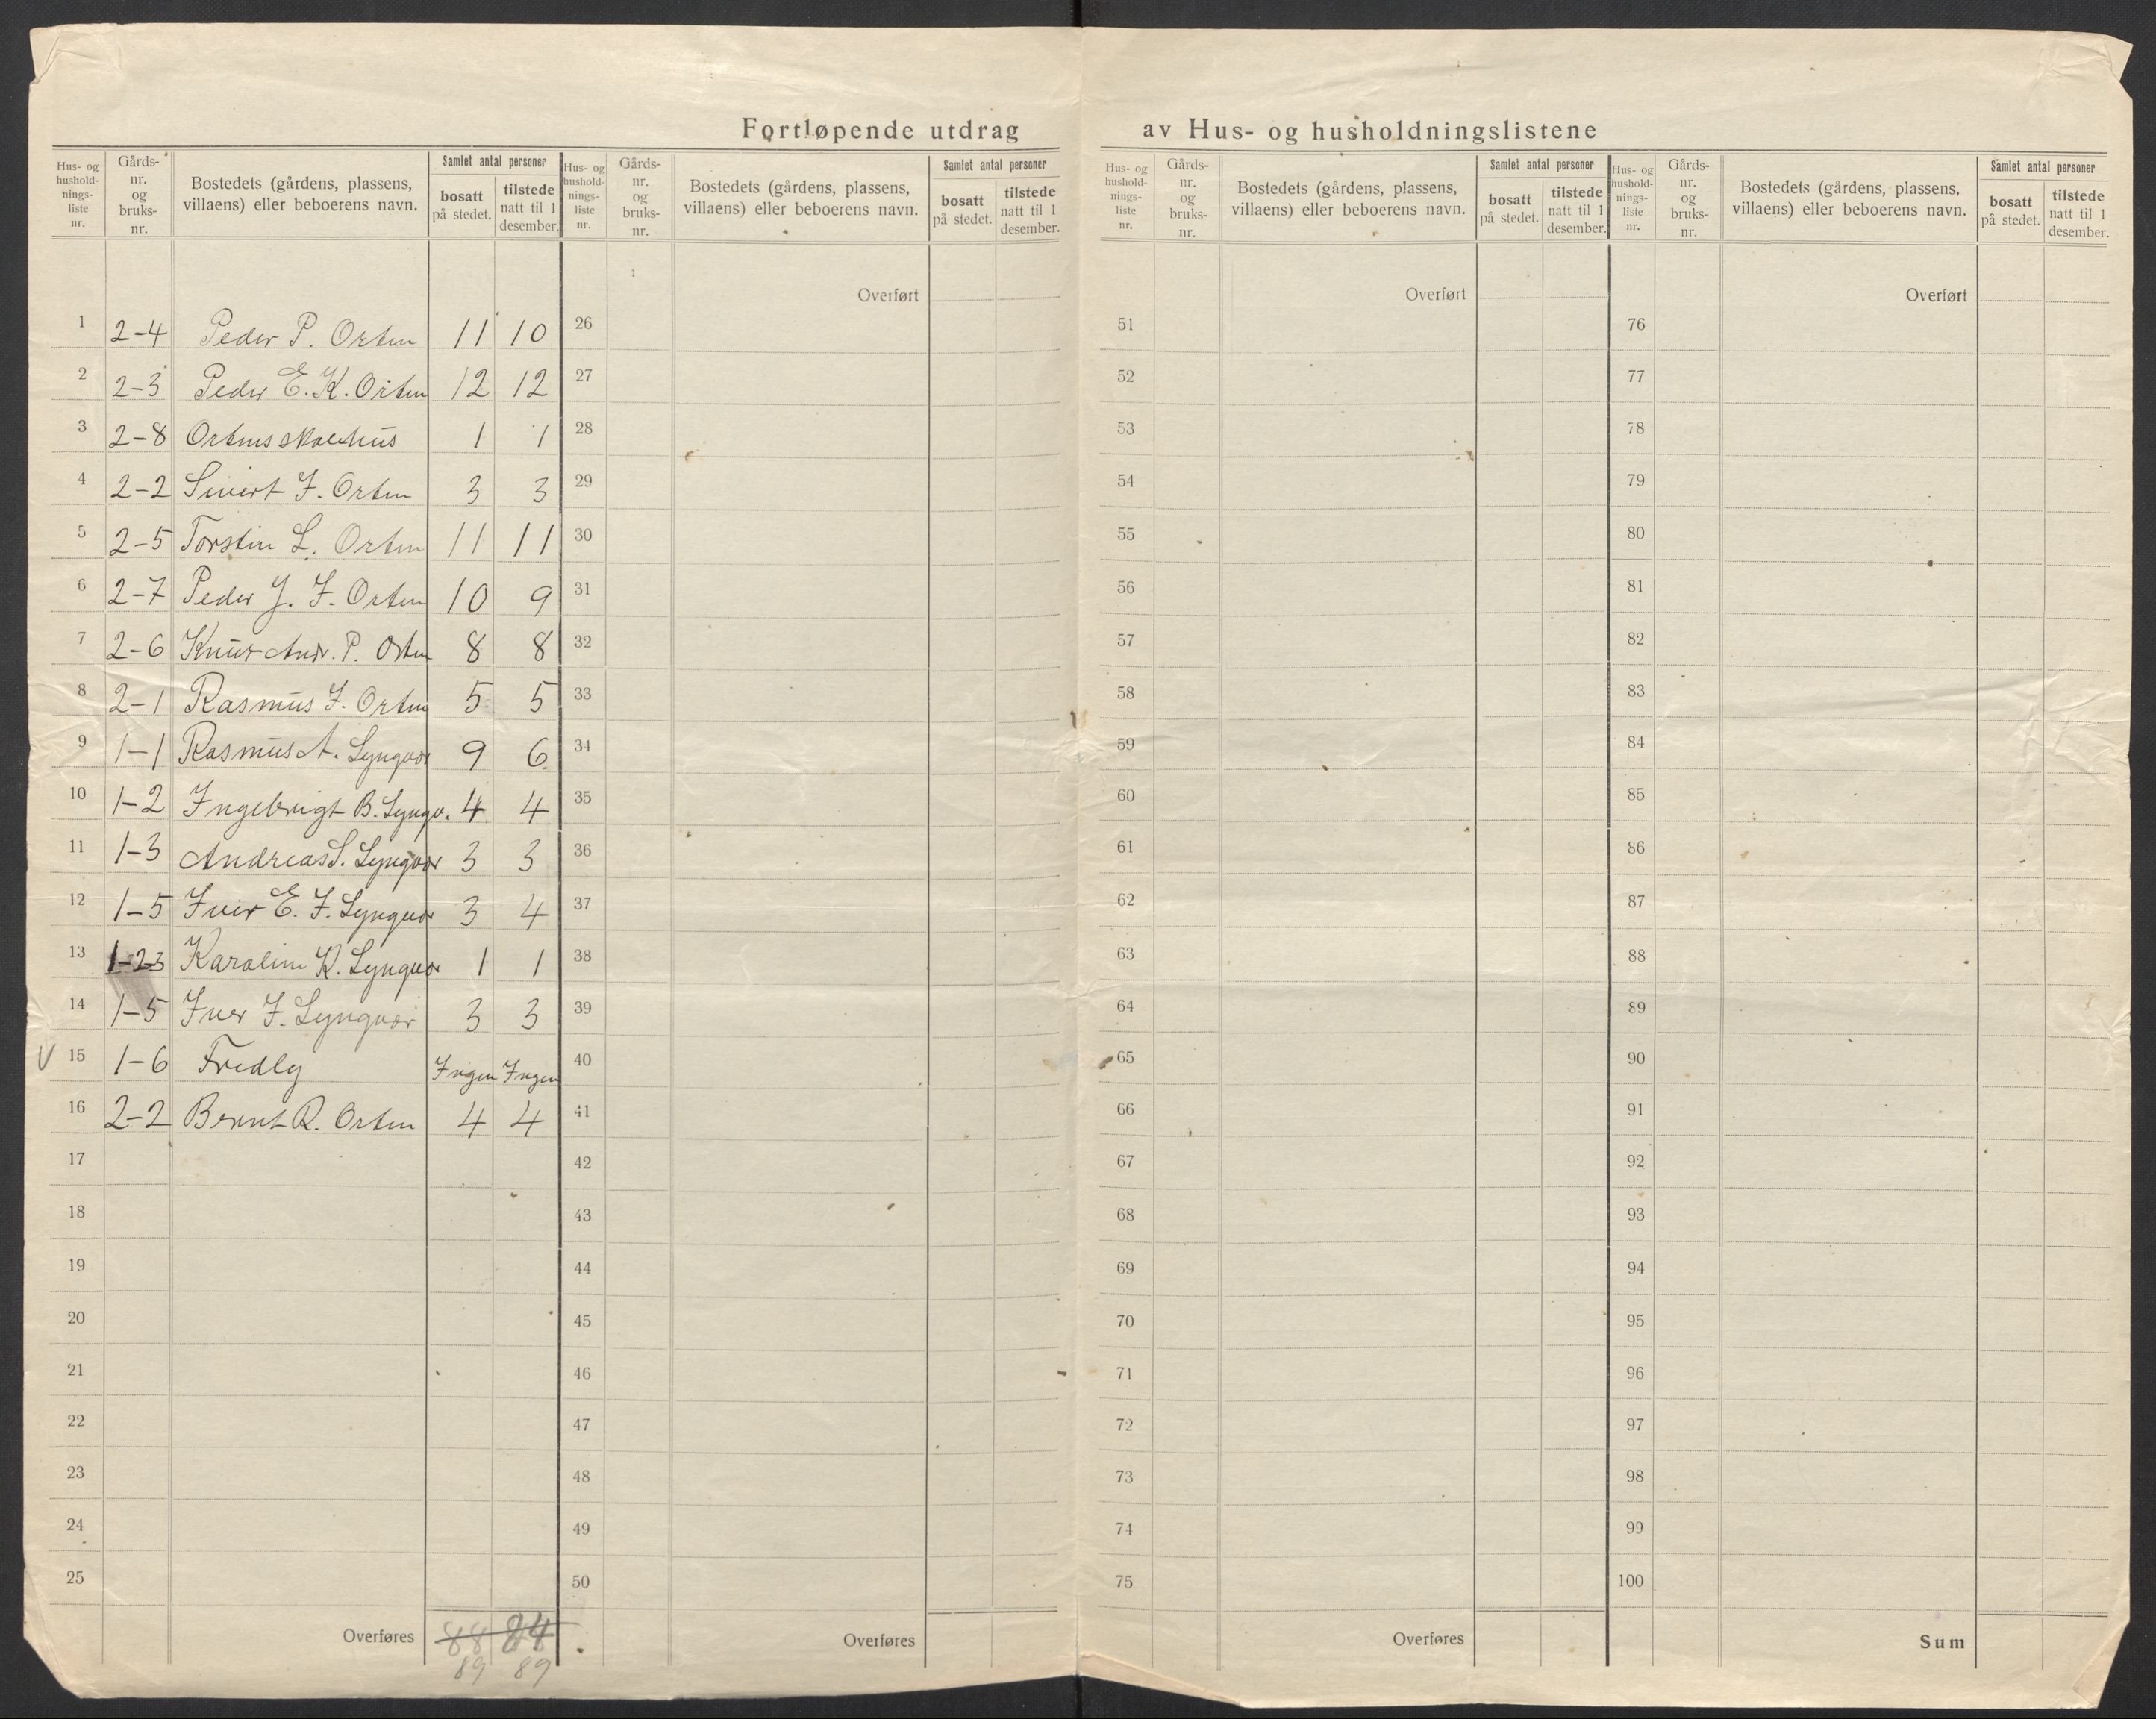 Fortløpende utdrag av Hus- og husholdningslistene
Hus- og hushold-nings-liste nr. Gårds-nr. og bruks-nr. Bostedets (gårdens, plassens, villaens) eller beboerens navn. Samlet antal personer bosatt på stedet. tilstede natt til 1 desember.
Hus- og hushold-nings-liste nr. Gårds-nr. og bruks-nr. Bostedets (gårdens, plassens, villaens) eller beboerens navn. Samlet antal personer bosatt på stedet. tilstede natt til 1 desember.
Hus- og hushold-nings-liste nr. Gårds-nr. og bruks-nr. Bostedets (gårdens, plassens, villaens) eller beboerens navn. Samlet antal personer bosatt på stedet. tilstede natt til 1 desember.
Hus- og hushold-nings-liste nr. Gårds-nr. og bruks-nr. Bostedets (gårdens, plassens, villaens) eller beboerens navn. Samlet antal personer bosatt på stedet. tilstede natt til 1 desember.
Overført Overført Overført
1 2-4 Peder P. Orten 11 10 26 51 76
2 2-3 Peder E. K. Orten 12 12 27 52 77
3 2-8 Ortens skolehus 1 1 28 53 78
4 2-2 Sivert I. Orten 3 3 29 54 79
5 2-5 Torstein L. Orten 11 11 30 55 80
6 2-7 Peder J. I. Orten 10 9 31 56 81
7 2-6 Knut Andr. P. Orten 8 8 32 57 82
8 2-1 Rasmus I. Orten 5 5 33 58 83
9 1-1 Rasmus A. Lyngvær 9 6 34 59 84
10 1-2 Ingebrigt B. Lyngv. 4 4 35 60 85
11 1-3 Andreas S. Lyngvær 3 3 36 61 86
12 1-5 Iver E. I. Lyngvær 3 4 37 62 87
13 1-23 Karoline K. Lyngvær 1 1 38 63 88
14 1-5 Iver I. Lyngvær 3 3 39 64 89
V 15 1-6 Fredly Ingen Ingen 40 65 90
16 2-2 Bernt R. Orten 4 4 41 66 91
17 42 67 92
18 43 68 93
19 44 69 94
20 45 70 95
21 46 71 96
22 47 72 97
23 48 73 98
24 49 74 99
25 50 75 100
Overføres 88 84 Overføres Overføres Sum
89 89